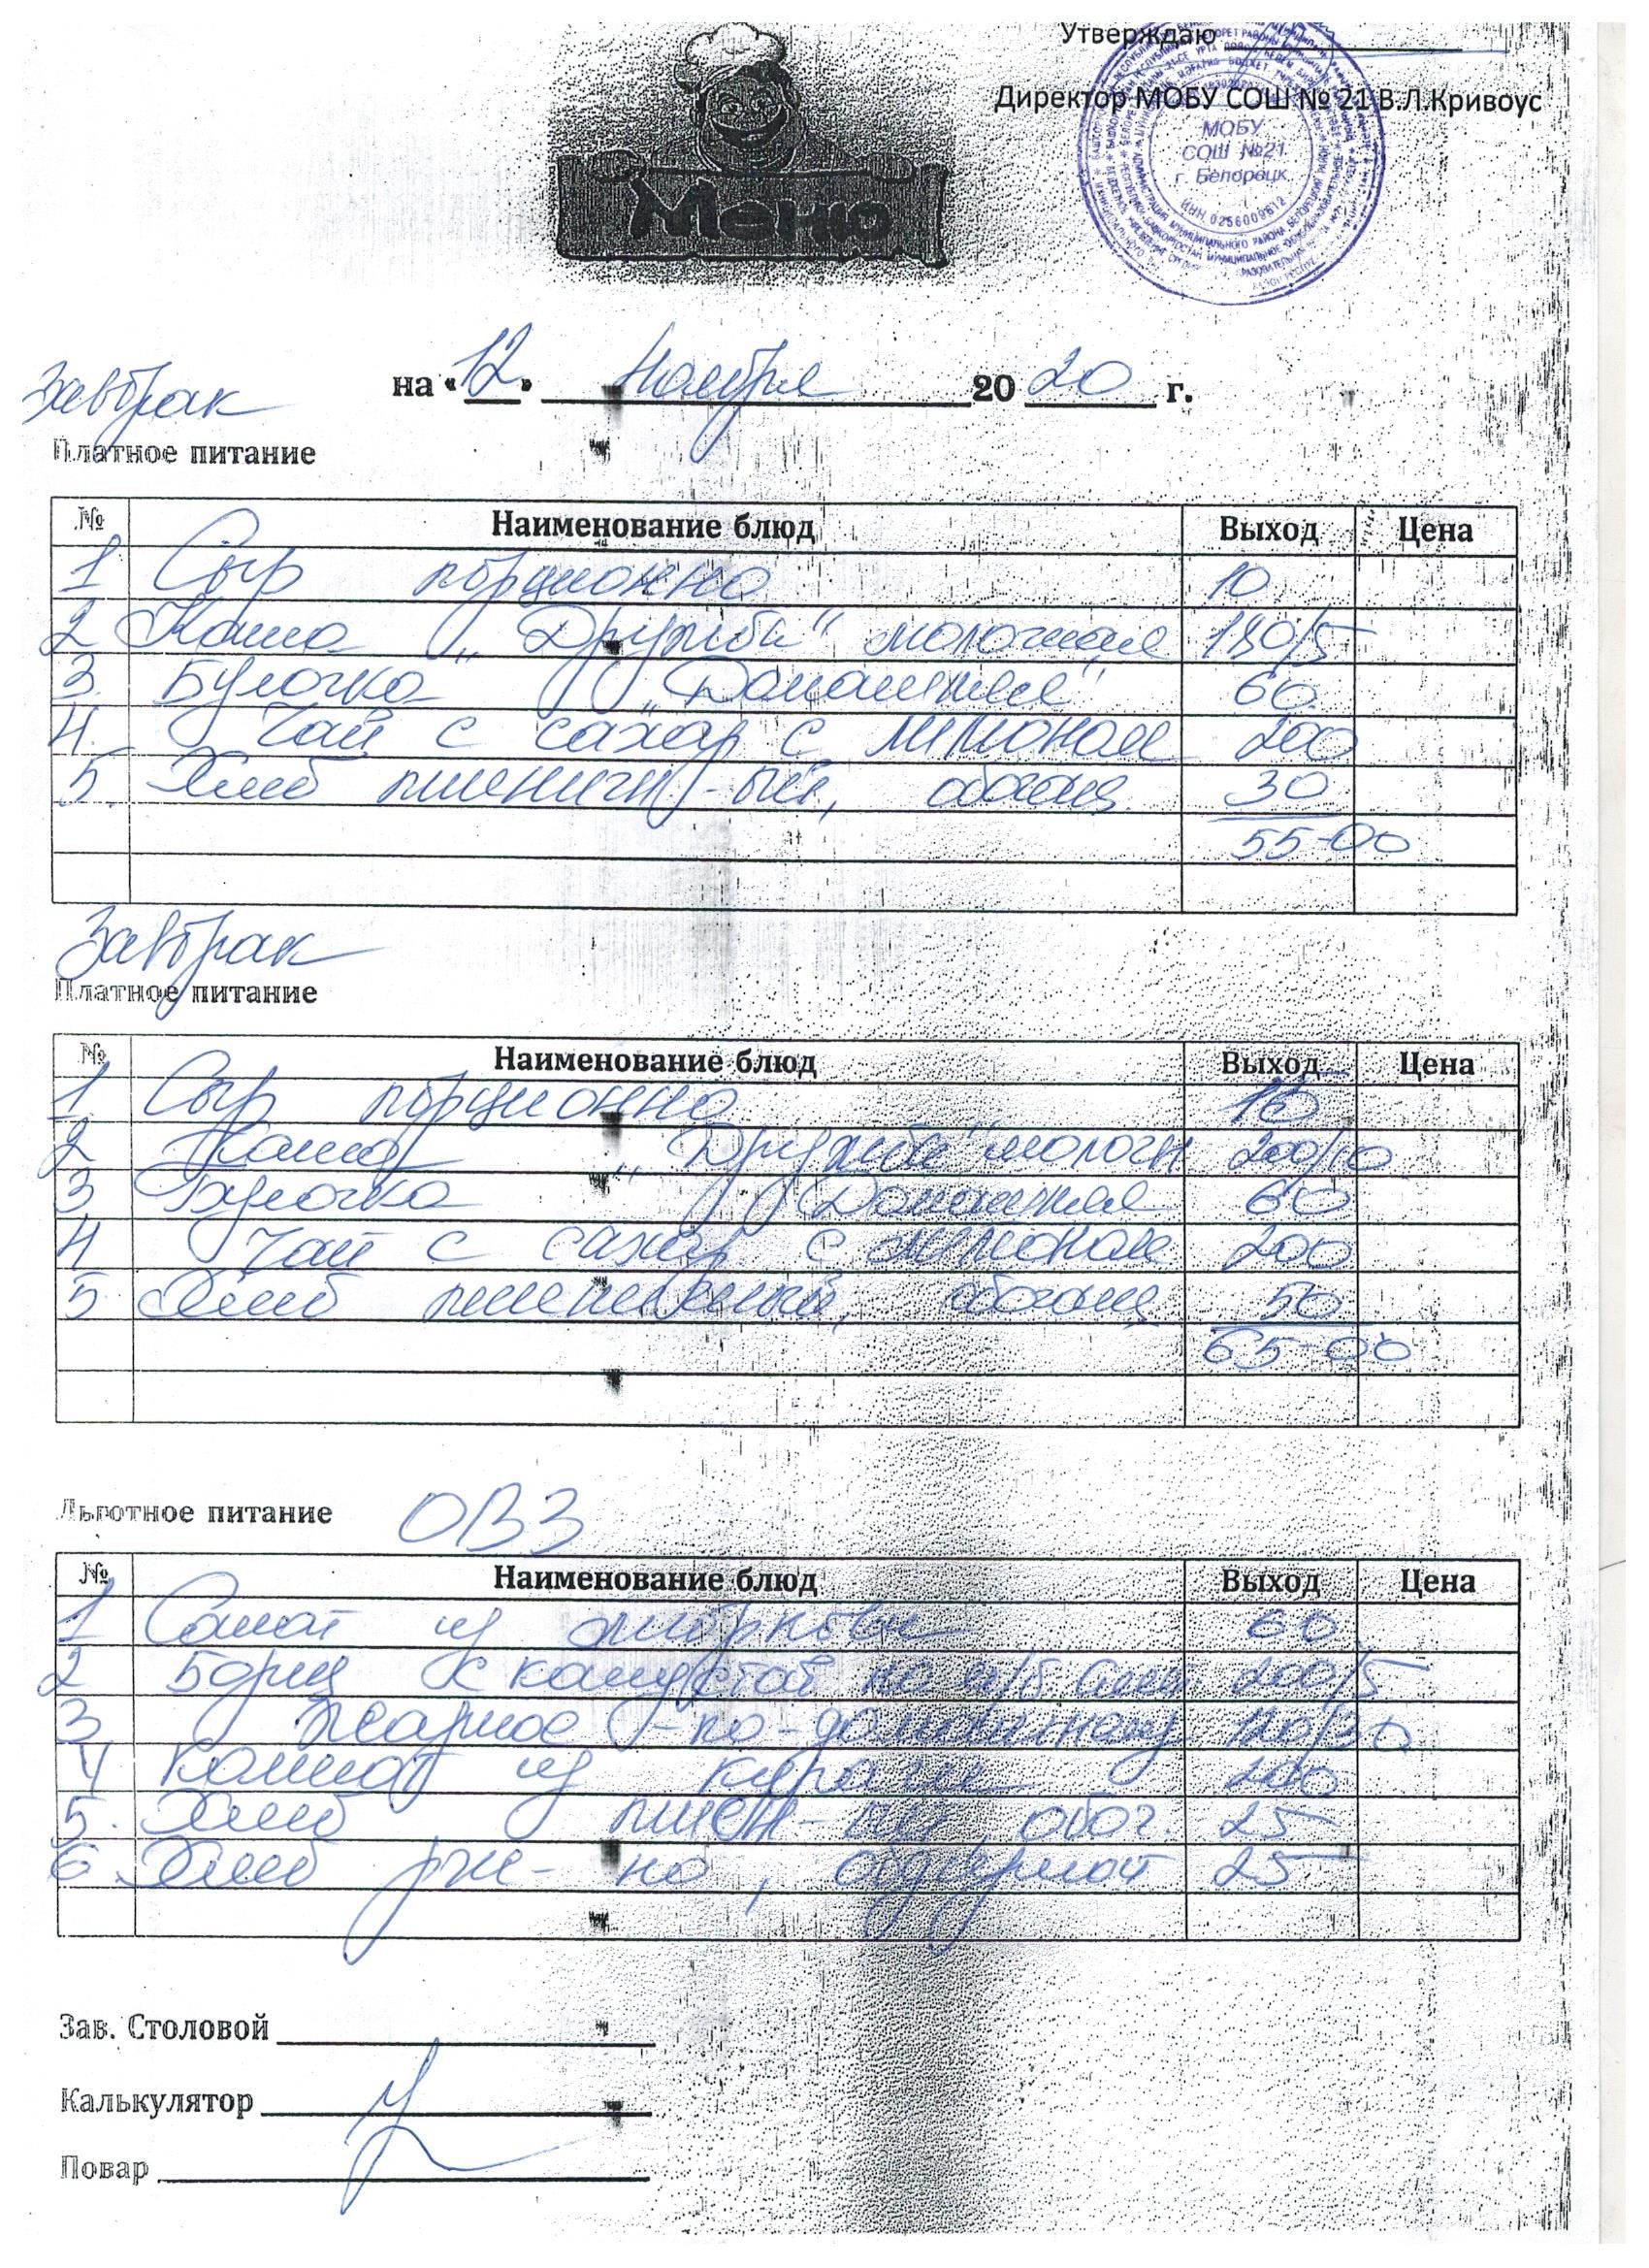 Утверждаю
Директор МОБУ СОШ № 21 В.Л.Кривоус
МОБУ
СОШ №21
г. Белорецк
ИНН 0256009612
Меню
Завтрак
на «12» Ноября 2020 г.
Платное питание
№ Наименование блюд Выход Цена
1 Сыр порционно 10
2 Каша „Дружба" молочная 180/5
3. Булочка „Домашняя" 60
4. Чай с сахар с лимоном 200
5. Хлеб пшеничн-ый, обогащ 30
55-00
Завтрак
Платное питание
№ Наименование блюд Выход Цена
1 Сыр порционно 10
2 Каша „Дружба" молочн 200/10
3 Булочка Домашняя 60
4 Чай с сахар с лимоном 200
5 Хлеб пшеничный, обогащ 50
65-00
Льготное питание ОВЗ
№ Наименование блюд Выход Цена
1 Салат из моркови 60
2 Борщ с капустой на м/б смет 200/5
3 Жаркое-по-домашнему
4 Компот из кураги 200
5. Хлеб пшен-ый, обог. 25
6. Хлеб рж-но, 25
Зав. Столовой
Калькулятор
Повар